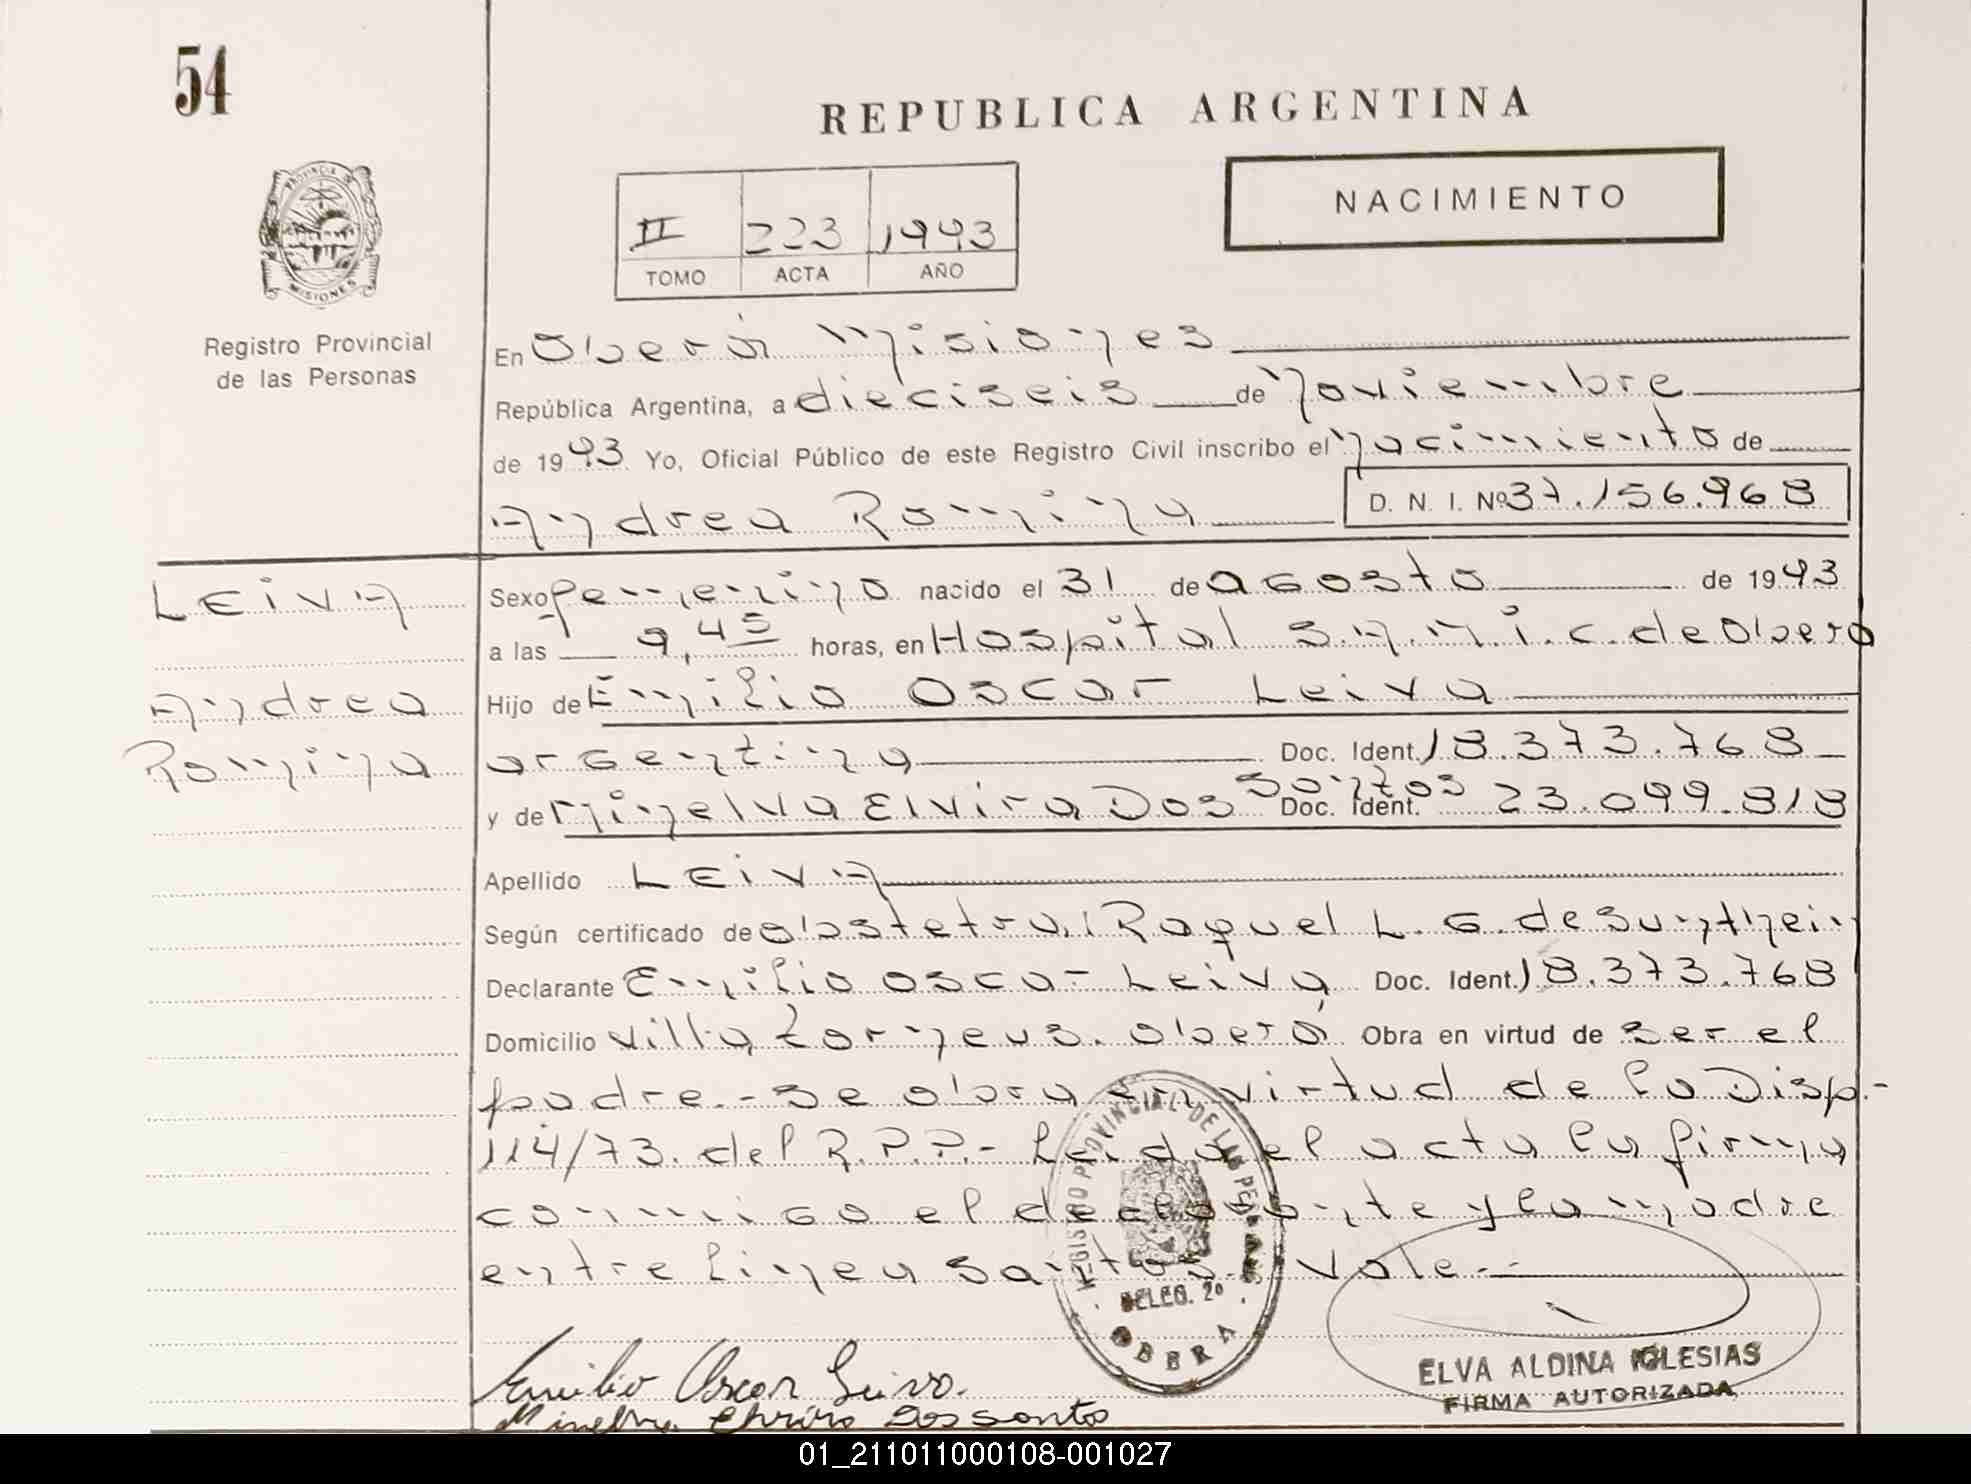 54
REPUBLICA ARGENTINA
NACIMIENTO
II 223 1993
TOMO ACTA AÑO
PROVINCIA DE
MISIONES
Registro Provincial
de las Personas
En Oberá Misiones
República Argentina, a dieciseis de Noviembre
de 1993. Yo, Oficial Público de este Registro Civil inscribo el Nacimiento de
Andrea Romina D. N. I. Nº 37.156.968
LEIVA
Andrea
Romina
Sexo femenino nacido el 31 de agosto de 1993
a las 9,45 horas, en Hospital S.A.M.i.c. de Oberá
Hijo de Emilio Oscar Leiva
argentina Doc. Ident. 18.373.768
santos
y de Minelva Elvira Dos Doc. Ident. 23.099.818
Apellido LEIVA
Según certificado de Obstetra: Raquel L. G. de
Declarante Emilio Oscar Leiva Doc. Ident. 18.373.768
Domicilio Villa Oberá Obra en virtud de ser el
padre.- Se obra en virtud de la Disp.-
114/73. del R.P.P.- Leida el acta la firma
conmigo el declarante y la madre
entre linea santos. Vale.-
REGISTRO PROVINCIAL DE LAS PERSONAS
DELEG. 2º
OBERA
Emilio Oscar Leiva.
Minelva Elvira Dos santos
ELVA ALDINA IGLESIAS
FIRMA AUTORIZADA
01_211011000108-001027